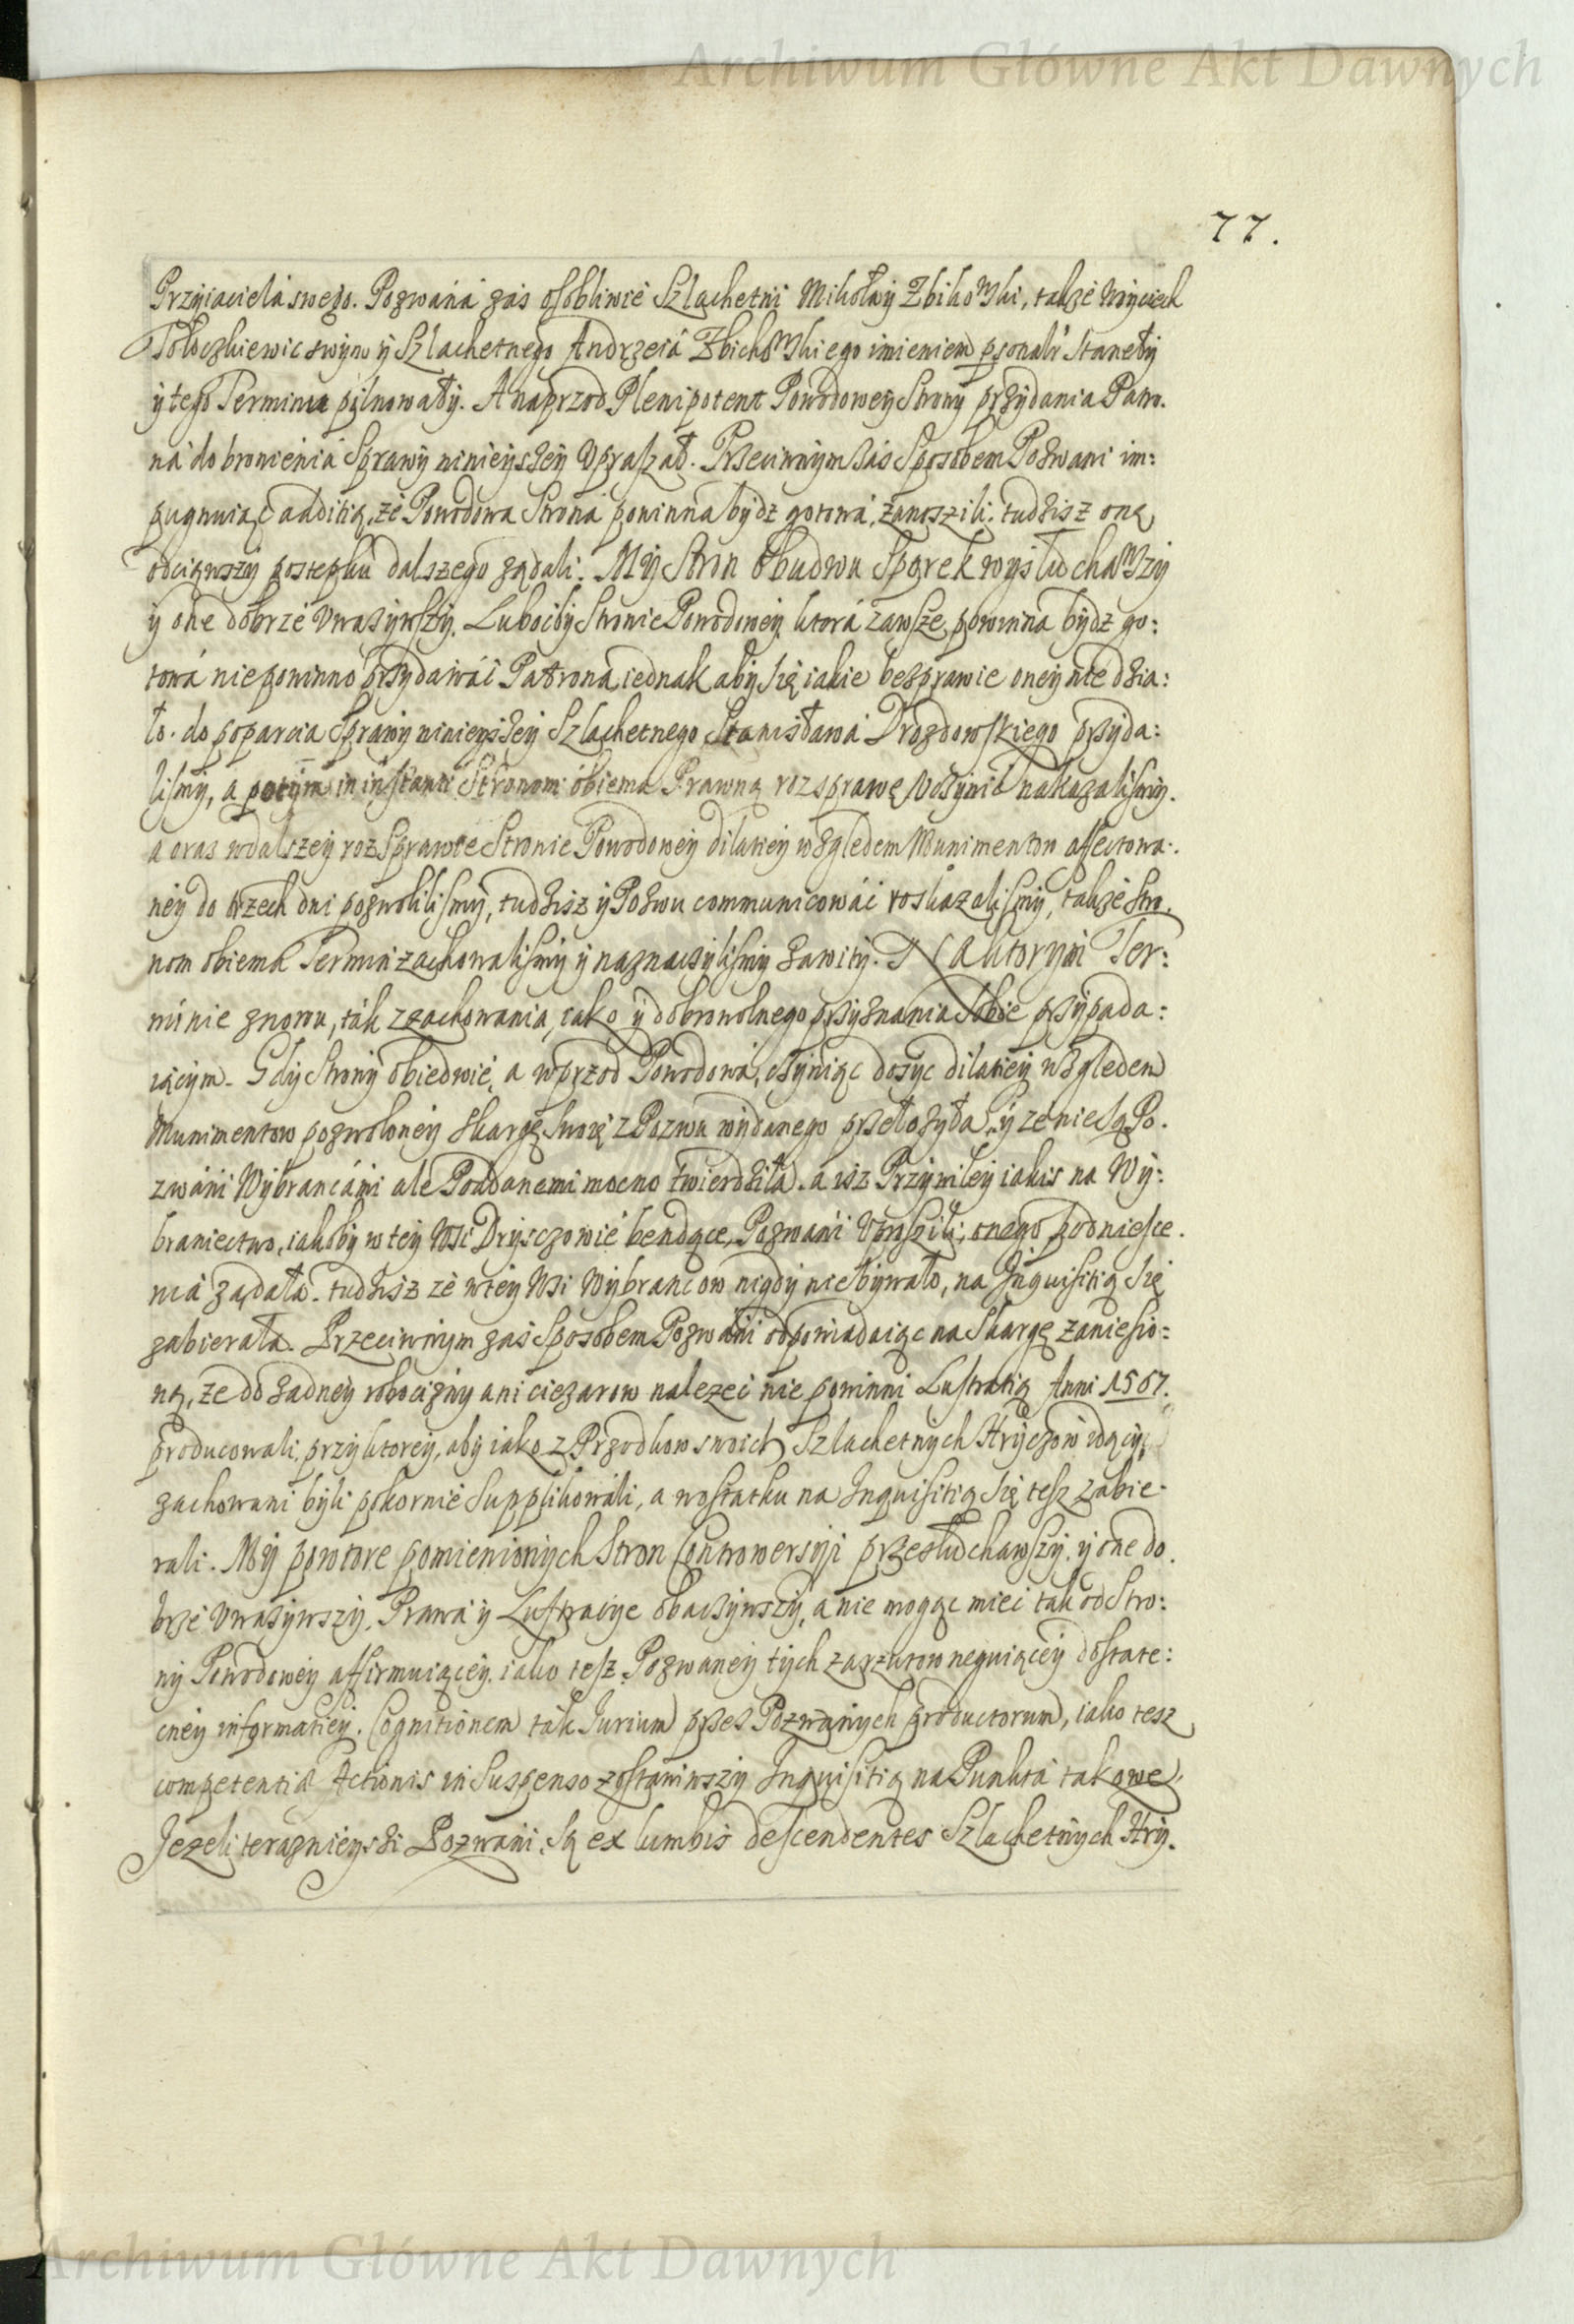 Archiwum Główne Akt Dawnych
77.
Przyiacielá swego. Pozwáná zás osobliwié Szlachetni Mikołáy Zbikowski, takze Woyciech
Tołoczkiewic swym ÿ Szlachetnego Andrzeiá Zbickowskiego imieniem psonalr Stanęły
ÿ tego Terminu pilnowały. A naprzod Plenipotent Powodowey Strony przydania Patro.
ná do bronieniá Sprawy ninieyszey upraszał. Przeciwnym zás Sposobem Pozwani im:
pugnuiąc additią, ze Powodowa Stroná powinna bydz gotowá, zanoszili. tudzisz onę
odciąwszy postępku dalszego ządali. My Stron Obudwu Sporek wysłuchawszy
ÿ one dobrze uwazywszy. Luboćby Stronie Powodowey ktorá zawsze powinna bydz go:
towá niepowinno przydawáć Patroná iednak aby się iakie bezprawie oney nie dzia:
ło. do poparcia Sprawy ninieyszey Szlachetnego Stanisławá Drozdowskiego przyda:
lismy, a potym in instanti Stronom obiema Prawną rozsprawę uczynić nakazalismy.
a oraz w dalszey rozsprawie Stronie Powodowey dilatiey względem Munimentow affectowa:
ney do trzech dni pozwolilismy, tudzisz ÿ Pozwu communicowáć roskazalismy, takze Stro.
nom obiema Termin zachowalismy ÿ naznaczylismy zawity. W ktorym Ter:
minie znowu, ták zzachowania, iako ÿ dobrowolnego przyznania Sobie przypada:
iącym. Gdy Strony obiedwie, a wprzod Powodowá, czyniąc dosyc dilatiey względem
Munimentow pozwoloney Skargę Swoię z Pozwu wydanego przełozyła, ÿ ze nie Są Po.
zwáni Wybrancámi ale Poddanemi mocno twierdziła. a isz Przywiley iakis na Wy:
braniectwo, iakoby w tey Wsi Dryszczowie bendące, Pozwani uprosili, onego podniesie.
nia ządała. tudzisz ze w tey Wsi Wybrancow nigdy nie bywało, na Inquisitią Się
zabierała. Przeciwnym zas Sposobem Pozwáni odpowiadaiąc na Skargę zaniesio:
ną, ze do zadney robocizny ani ciezarow nalezeć nie powinni Lustratią Anni 1567.
producowali, przy ktorey, aby iako z Przodkow swoich Szlachetnych Hryczow idący,
zachowani byli pokornie Supplikowáli, a wostatku na Inquisitią Się tesz zabie.
rali. My powtore pomienionych Stron Controwersyi przesłuchawszy. ÿ one do.
brze uwazywszy, Prawá ÿ Lustracye obaczywszy, a nie mogąc mieć tak od Stro:
ny Powodowey affirmuiącey, iako tesz Pozwaney tych zarzutow neguiącey dostate:
cney informatiey. Cognitionem ták Jurium przez Pozwanych productorum, iako tesz
competentiá Actionis in Suspenso zostawiwszy Inquisitią na Punktá takowe.
Jezeli teraznieyszi Pozwáni, Są ex lumbis descendentes Szlachetnych Hry.
Archiwum Główne Akt Dawnych